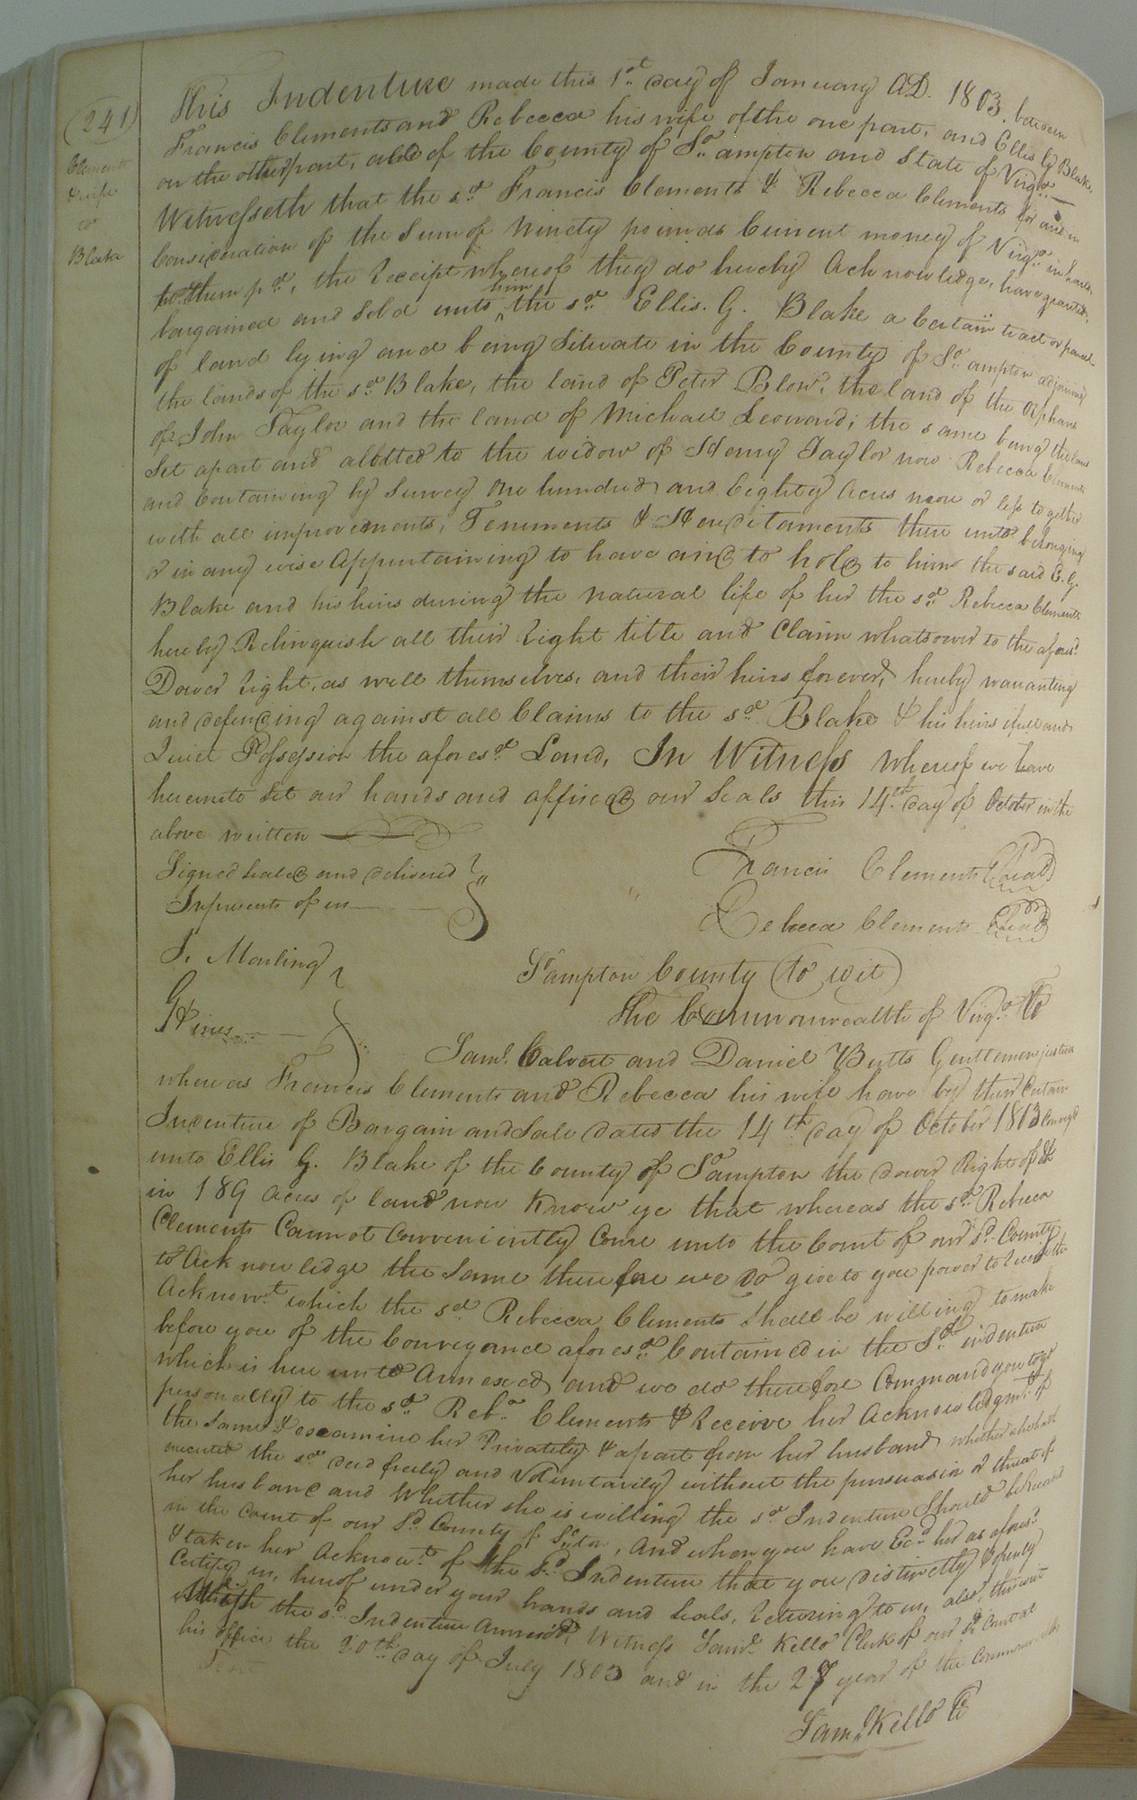 (241)
Clements
& wife
to
Blake
This Indenture made this 1st day of January AD. 1803. between
Francis Clements and Rebecca his wife of the one part, and Ellis G Blake
on the other part, all of the County of So.ampton and State of Virga.
Witnesseth that the sd. Francis Clements & Rebecca Clements for and in
Consideration of the Sum of Ninety pounds Current money of Virga. in hand
to them pd., the receipt whereof they do hereby Acknowledge, have granted,
bargained and Sold unto him the sd. Ellis. G. Blake a Certain tract or parcel
of land lying and being Situate in the County of So.ampton adjoining
the lands of the sd. Blake, the land of Peter Blow, the land of the Orphans
of John Taylor and the land of Michael Leonard; the same being the land
Set apart and allotted to the widow of Henry Taylor now Rebecca Clements
and Containing by Survey One hundred and Eighty Acres more or less together
with all improvements, Tenements & Hereditaments there unto belonging
or in any wise Appertaining to have and to hold to him the said E. G.
Blake and his heirs during the natural life of her the sd. Rebecca Clements
hereby Relinquish all their right title and Claim whatsoever to the aforesd.
Dower right, as well themselves, and their heirs forever, hereby warranting
and defending against all Claims to the sd. Blake & his heirs full and
Quiet Possession the aforesd. Land, In Witness whereof we have
hereunto Set our hands and affixed our Seals this 14th day of October in the
above written
Signed Sealed and delivered
In presents of us
Francis Clements (Seal)
Rebecca Clements (Seal)
J. Mouling
G Hines
So.ampton County (to wit)
The Commonwealth of Virga. To
Saml. Calvert and Daniel Butts Gentlemen justices
whereas Francis Clements and Rebecca his wife have by their Certain
Indenture of Bargain and Sale dated the 14th day of October 1803 Conveyed
unto Ellis G. Blake of the County of So.ampton the dower Right of &c
in 189 Acres of land now Know ye that whereas the sd. Rebecca
Clements Cannot Conveniently Come unto the Court of our sd. County
to Acknowledge the Same therefore we do give to you power to receive the
Acknowt. which the sd. Rebecca Clements Shall be willing to make
before you of the Conveyance aforesd. Contained in the Sd. indenture
which is here unto Annexed, and we do therefore Command you to go
personally to the sd. Reba. Clements & Receive her Acknowledgmt. of
the Same & examine her Privately & apart from her husband whether she hath
executed the sd. deed freely and Voluntarily without the persuasion or threat of
her husband and Whether she is willing the sd. Indenture Should be Record
in the Court of our Sd. County of So.ton, And when you have Ecd. her as aforesd.
& taken her Acknowt. of the Sd. Indenture that you distinctly & openly
Certify us, hereof under your hands and Seals, returning to us, also, this writ
with the sd. Indenture Annexed, Witness Saml. Kello Clerk of our sd. Court at
his Office the 20th day of July 1803 and in the 27 year of the Commonwealth
Saml. Kello C